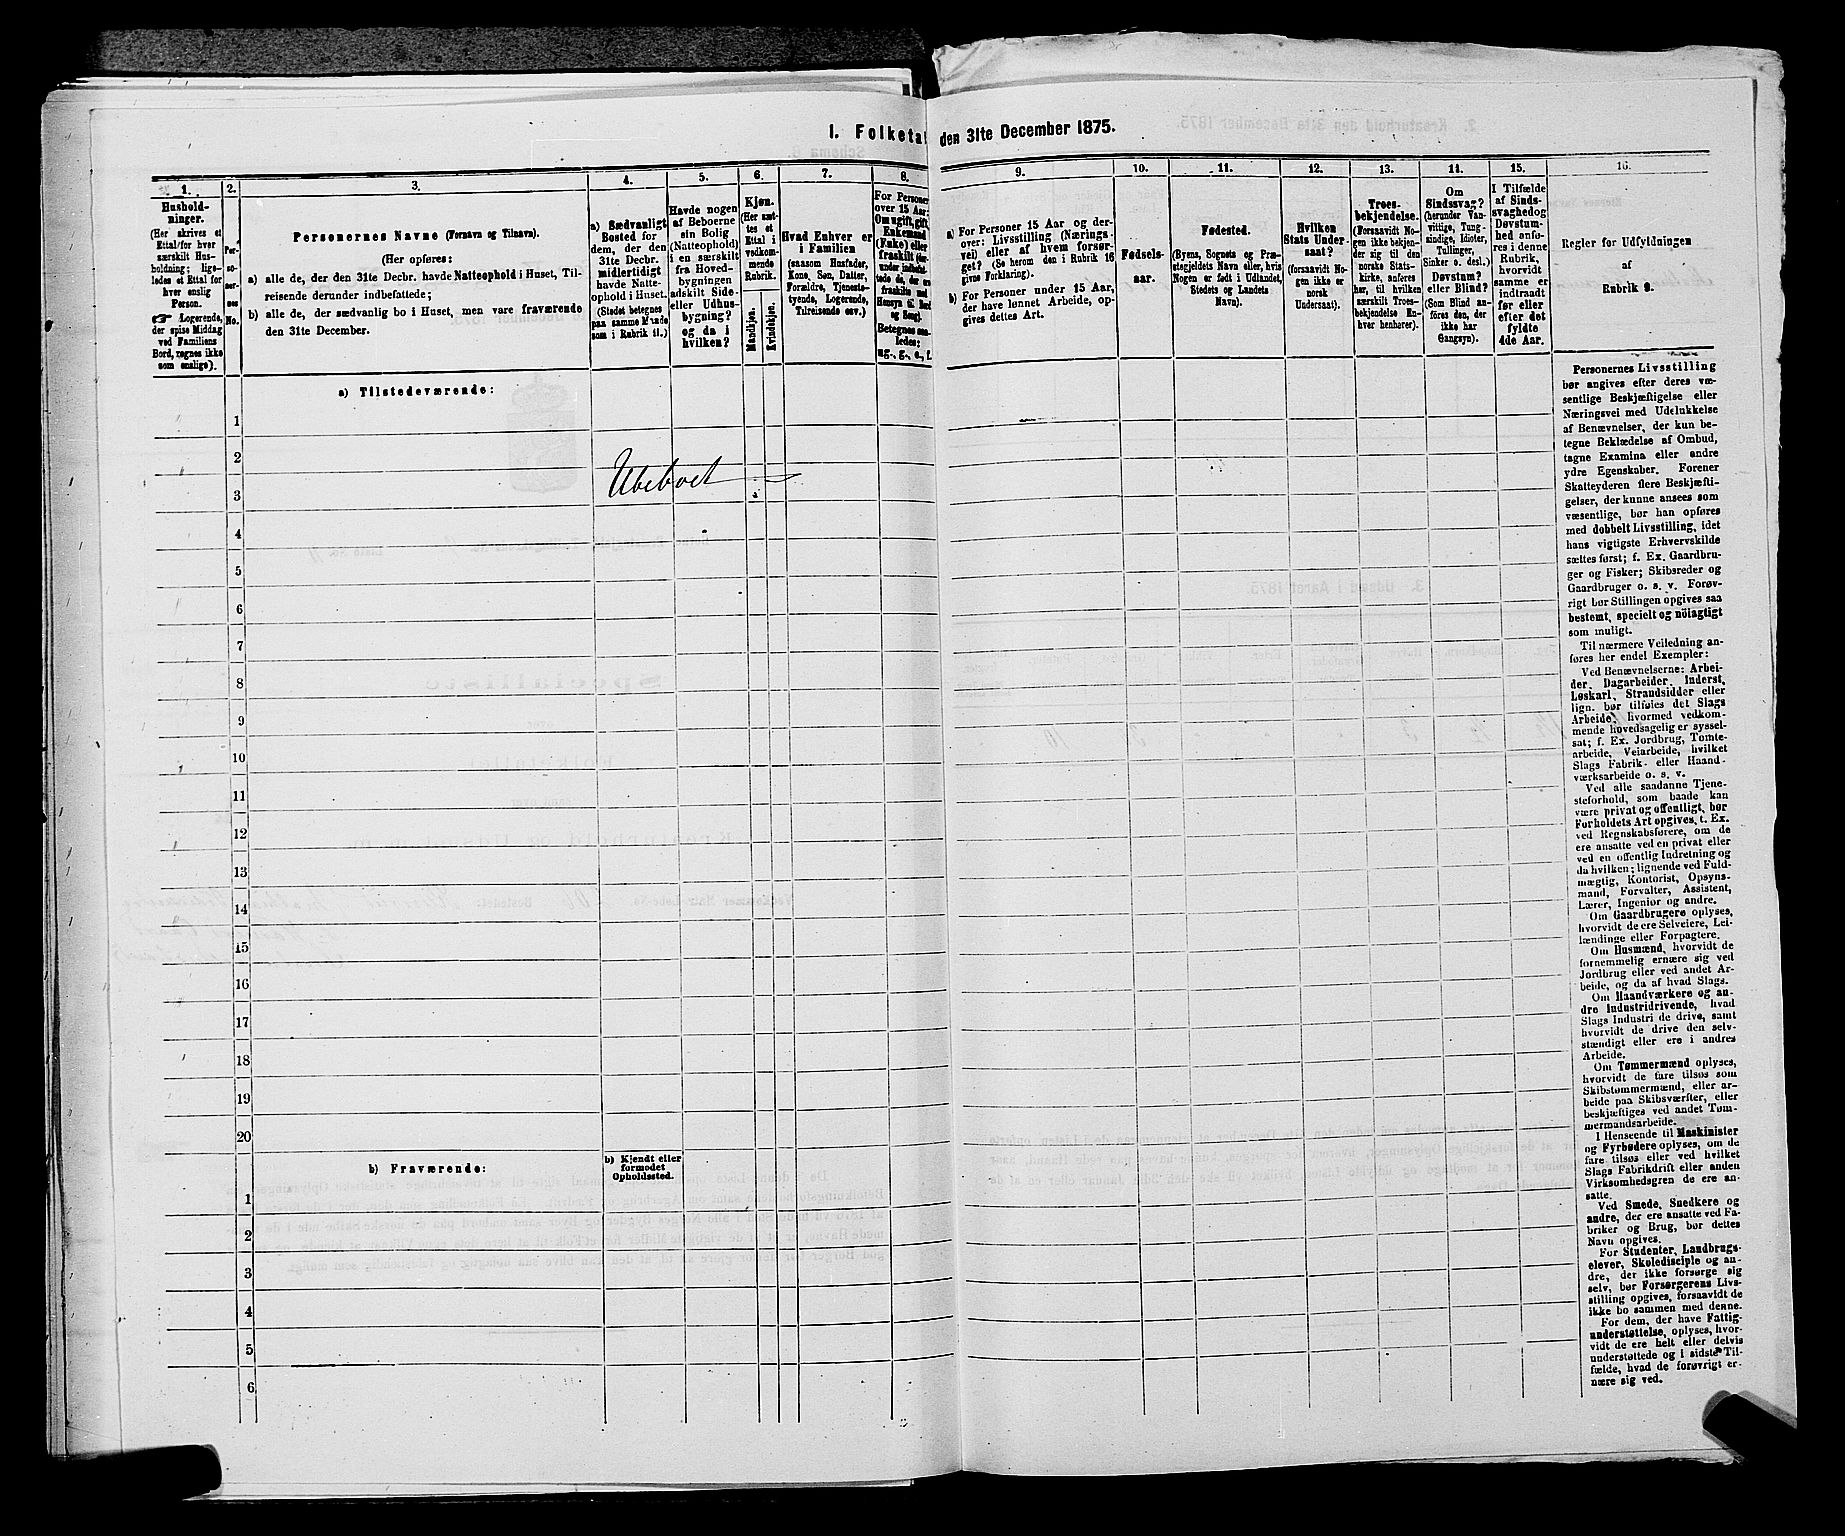 I. Folketal den 31te December 1875.
1.
Hushold-
ninger.
(Her skrives et
Ettal for hver
særskilt Hus-
holdning; lige-
ledes et Ettal for
hver enslig
Person.
☞ Logerende,
der spise Middag
ved Familiens
Bord, regnes ikke
som enslige).
2.
Per-
so-
ner-
nes
No.
3.
Personernes Navne (Fornavn og Tilnavn).
(Her opføres:
a) alle de, der den 31te Decbr. havde Natteophold i Huset, Til-
reisende derunder indbefattede;
b) alle de, der sædvanlig bo i Huset, men vare fraværende
den 31te December.
4.
a) Sædvanligt
Bosted for
dem, der den
31te Decbr.
midlertidigt
havde Natte-
ophold i Huset.
(Stedet betegnes
paa samme Maade
som i Rubrik 11.)
5.
Havde nogen
af Beboerne
sin Bolig
(Natteophold)
i en særskilt
fra Hoved-
bygningen
adskilt Side-
eller Udhus-
bygning?
og da i
hvilken?
6.
Kjøn.
(Her sæt-
tes et
Ettal i
vedkom-
mende
Rubrik.
Mandkjøn.
Kvindekjøn.
7.
Hvad Enhver er
i Familien
(saasom Husfader,
Kone, Søn, Datter,
Forældre, Tjeneste-
tyende, Logerende,
Tilreisende osv.)
8.
For Personer
over 15 Aar:
Om ugift, gift,
Enkemand
(Enke) eller
fraskilt
Betegnes saa-
ledes:
ug., g., e., f.
9.
a) For Personer 15 Aar og der-
over: Livsstilling (Nærings-
vei) eller af hvem forsør-
get? (Se herom den i Rubrik 16
givne Forklaring).
b) For Personer under 15 Aar,
der have lønnet Arbeide, op-
gives dettes Art.
10.
Fødsels-
aar.
11.
Fødested.
(Byens, Sognets og Præ-
stegjeldets Navn eller, hvis
Nogen er født i Udlandet,
Stedets og Landets
Navn).
12.
Hvilken
Stats Under-
saat?
(forsaavidt No-
gen ikke er
norsk
Undersaat).
13.
Troes-
bekjendelse.
(Forsaavidt No-
gen ikke bekjen-
der sig til den
norske Stats-
kirke, anføres
her, til hvilken
særskilt Troes-
bekjendelse En-
hver henhører).
14.
Om
Sindssvag?
(herunder Van-
vittige, Tung-
sindige, Idioter,
Tullinger,
Sinker o. desl.)
Døvstum?
eller Blind?
(Som Blind an-
føres den, der
ikke har
Gangsyn).
15.
I Tilfælde
af Sinds-
svaghed og
Døvstum-
hed anfø-
res i denne
Rubrik,
hvorvidt
samme er
indtraadt
før eller
efter det
fyldte
4de Aar.
16.
Regler for Udfyldningen
af
Rubrik 9.
a) Tilstedeværende:
1
2
Ubeboet
3
4
5
6
7
8
9
10
11
12
13
14
15
16
17
18
19
20
b) Fraværende:
b) Kjendt eller
formodet
Opholdssted.
1
2
3
4
5
6
Personernes Livsstilling
bør angives efter deres væ-
sentlige Beskjæftigelse eller
Næringsvei med Udelukkelse
af Benævnelser, der kun be-
tegne Beklædelse af Ombud,
tagne Examina eller andre
ydre Egenskaber. Forener
Skatteyderen flere Beskjæfti-
gelser, der kunne ansees som
væsentlige, bør han opføres
med dobbelt Livsstilling, idet
hans vigtigste Erhvervskilde
sættes først; f. Ex. Gaardbru-
ger og Fisker; Skibsreder og
Gaardbruger o. s. v. Forøv-
rigt bør Stillingen opgives saa
bestemt, specielt og nöiagtigt
som muligt.
Til nærmere Veiledning an-
føres her endel Exempler:
Ved Benævnelserne: Arbei-
der, Dagarbeider, Inderst,
Løskarl, Strandsidder eller
lign. bør tilføies det Slags
Arbeide, hvormed vedkom-
mende hovedsagelig er syssel-
sat; f. Ex. Jordbrug, Tomte-
arbeide, Veiarbeide, hvilket
Slags Fabrik- eller Haand-
værksarbeide o. s. v.
Ved alle saadanne Tjene-
steforhold, som baade kan
være privat og offentligt, bør
Forholdets Art opgives, t. Ex.
ved Regnskabsførere, om de
ere ansatte ved en privat eller
ved en offentlig Indretning og
da hvilken; lignende ved Fuld-
mægtig, Kontorist, Opsyns-
mand, Forvalter, Assistent,
Lærer, Ingeniør og andre.
Om Gaardbrugere oplyses,
hvorvidt de ere Selveiere, Lei-
lændinge eller Forpagtere.
Om Husmænd, hvorvidt de
fornemmelig ernære sig ved
Jordbrug eller ved andet Ar-
beide, og da af hvad Slags.
Om Haandværkere og an-
dre Industridrivende, hvad
Slags Industri de drive, samt
hvorvidt de drive den selv-
stændigt eller ere i andres
Arbeide.
Om Tømmermænd oplyses,
hvorvidt de fare tilsøs som
Skibstømmermænd, eller ar-
beide paa Skibsværfter, eller
beskjæftiges ved andet Tøm-
mermandsarbeide.
I Henseende til Maskinister
og Fyrbødere oplyses, om de
fare tilsøs eller ved hvilket
Slags Fabrikdrift eller anden
Virksomhedsgren de ere an-
satte.
Ved Smede, Snedkere og
andre, der ere ansatte ved Fa-
briker og Brug, bør dettes
Navn opgives.
For Studenter, Landbrugs-
elever, Skoledisciple og an-
dre, der ikke forsørge sig
selv, bør Forsørgerens Livs-
stilling opgives, forsaavidt de
ikke bo sammen med denne.
For dem, der have Fattig-
understøttelse, oplyses, hvor-
vidt de ere helt eller delvis
understøttede og i sidste Til-
fælde, hvad de forøvrigt er-
nære sig ved.